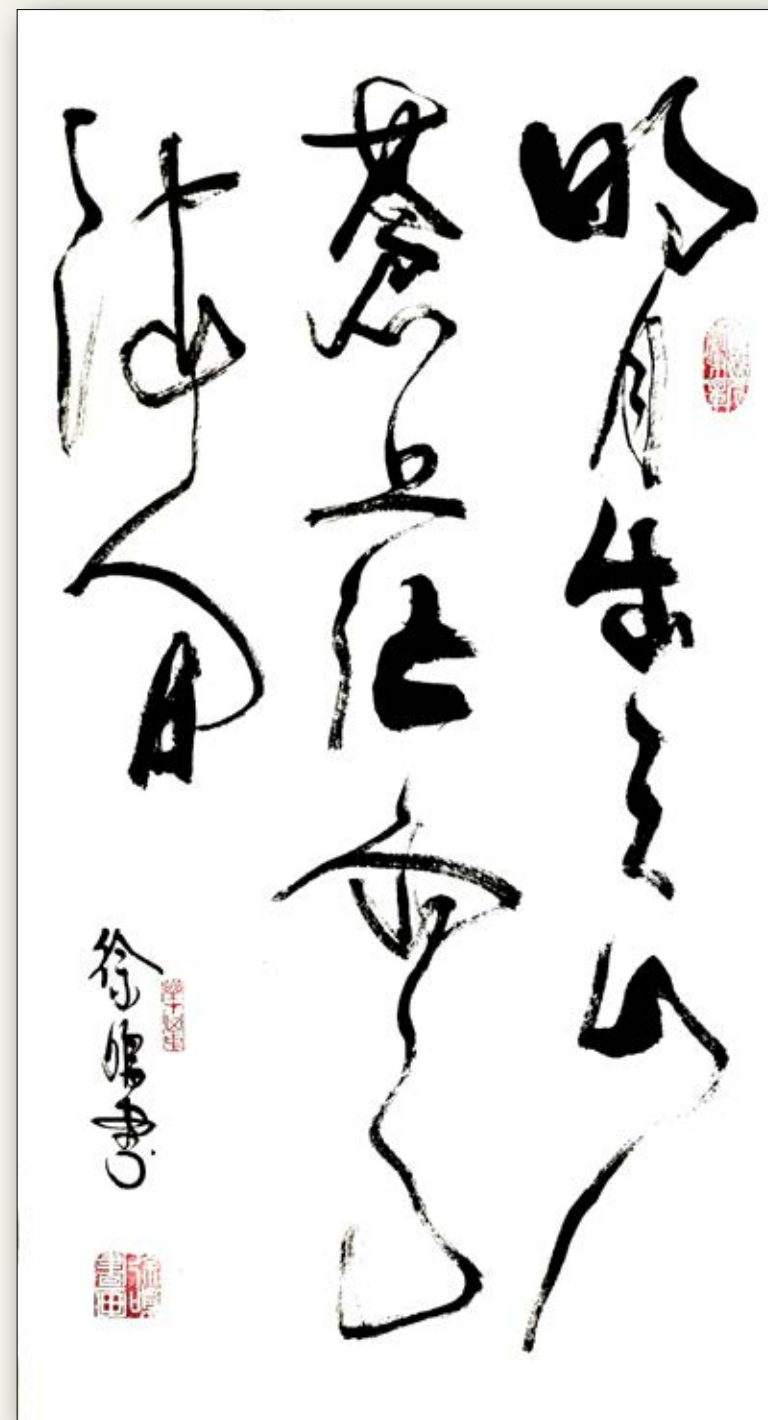 明月出天山
蒼茫雲
海間
徐書